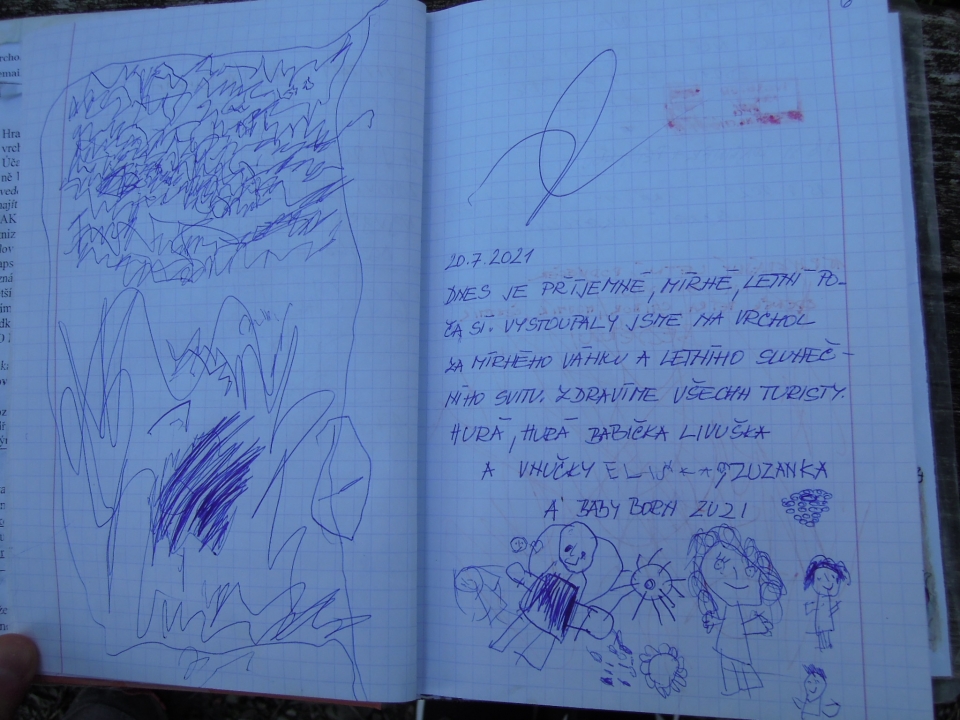 20.7.2021
DNES JE PŘÍJEMNÉ, MÍRNÉ, LETNÍ PO-
ČASÍ. VYSTOUPALY JSME NA VRCHOL
ZA MÍRNÉHO VÁNKU A LETNÍHO SLUNEČ-
NÍHO SVITU. ZDRAVÍME VŠECHN TURISTY.
HURÁ, HURÁ BABIČKA LIVUŠKA
A VNUČKY ZUZANKA
A BABY BORN ZUZI